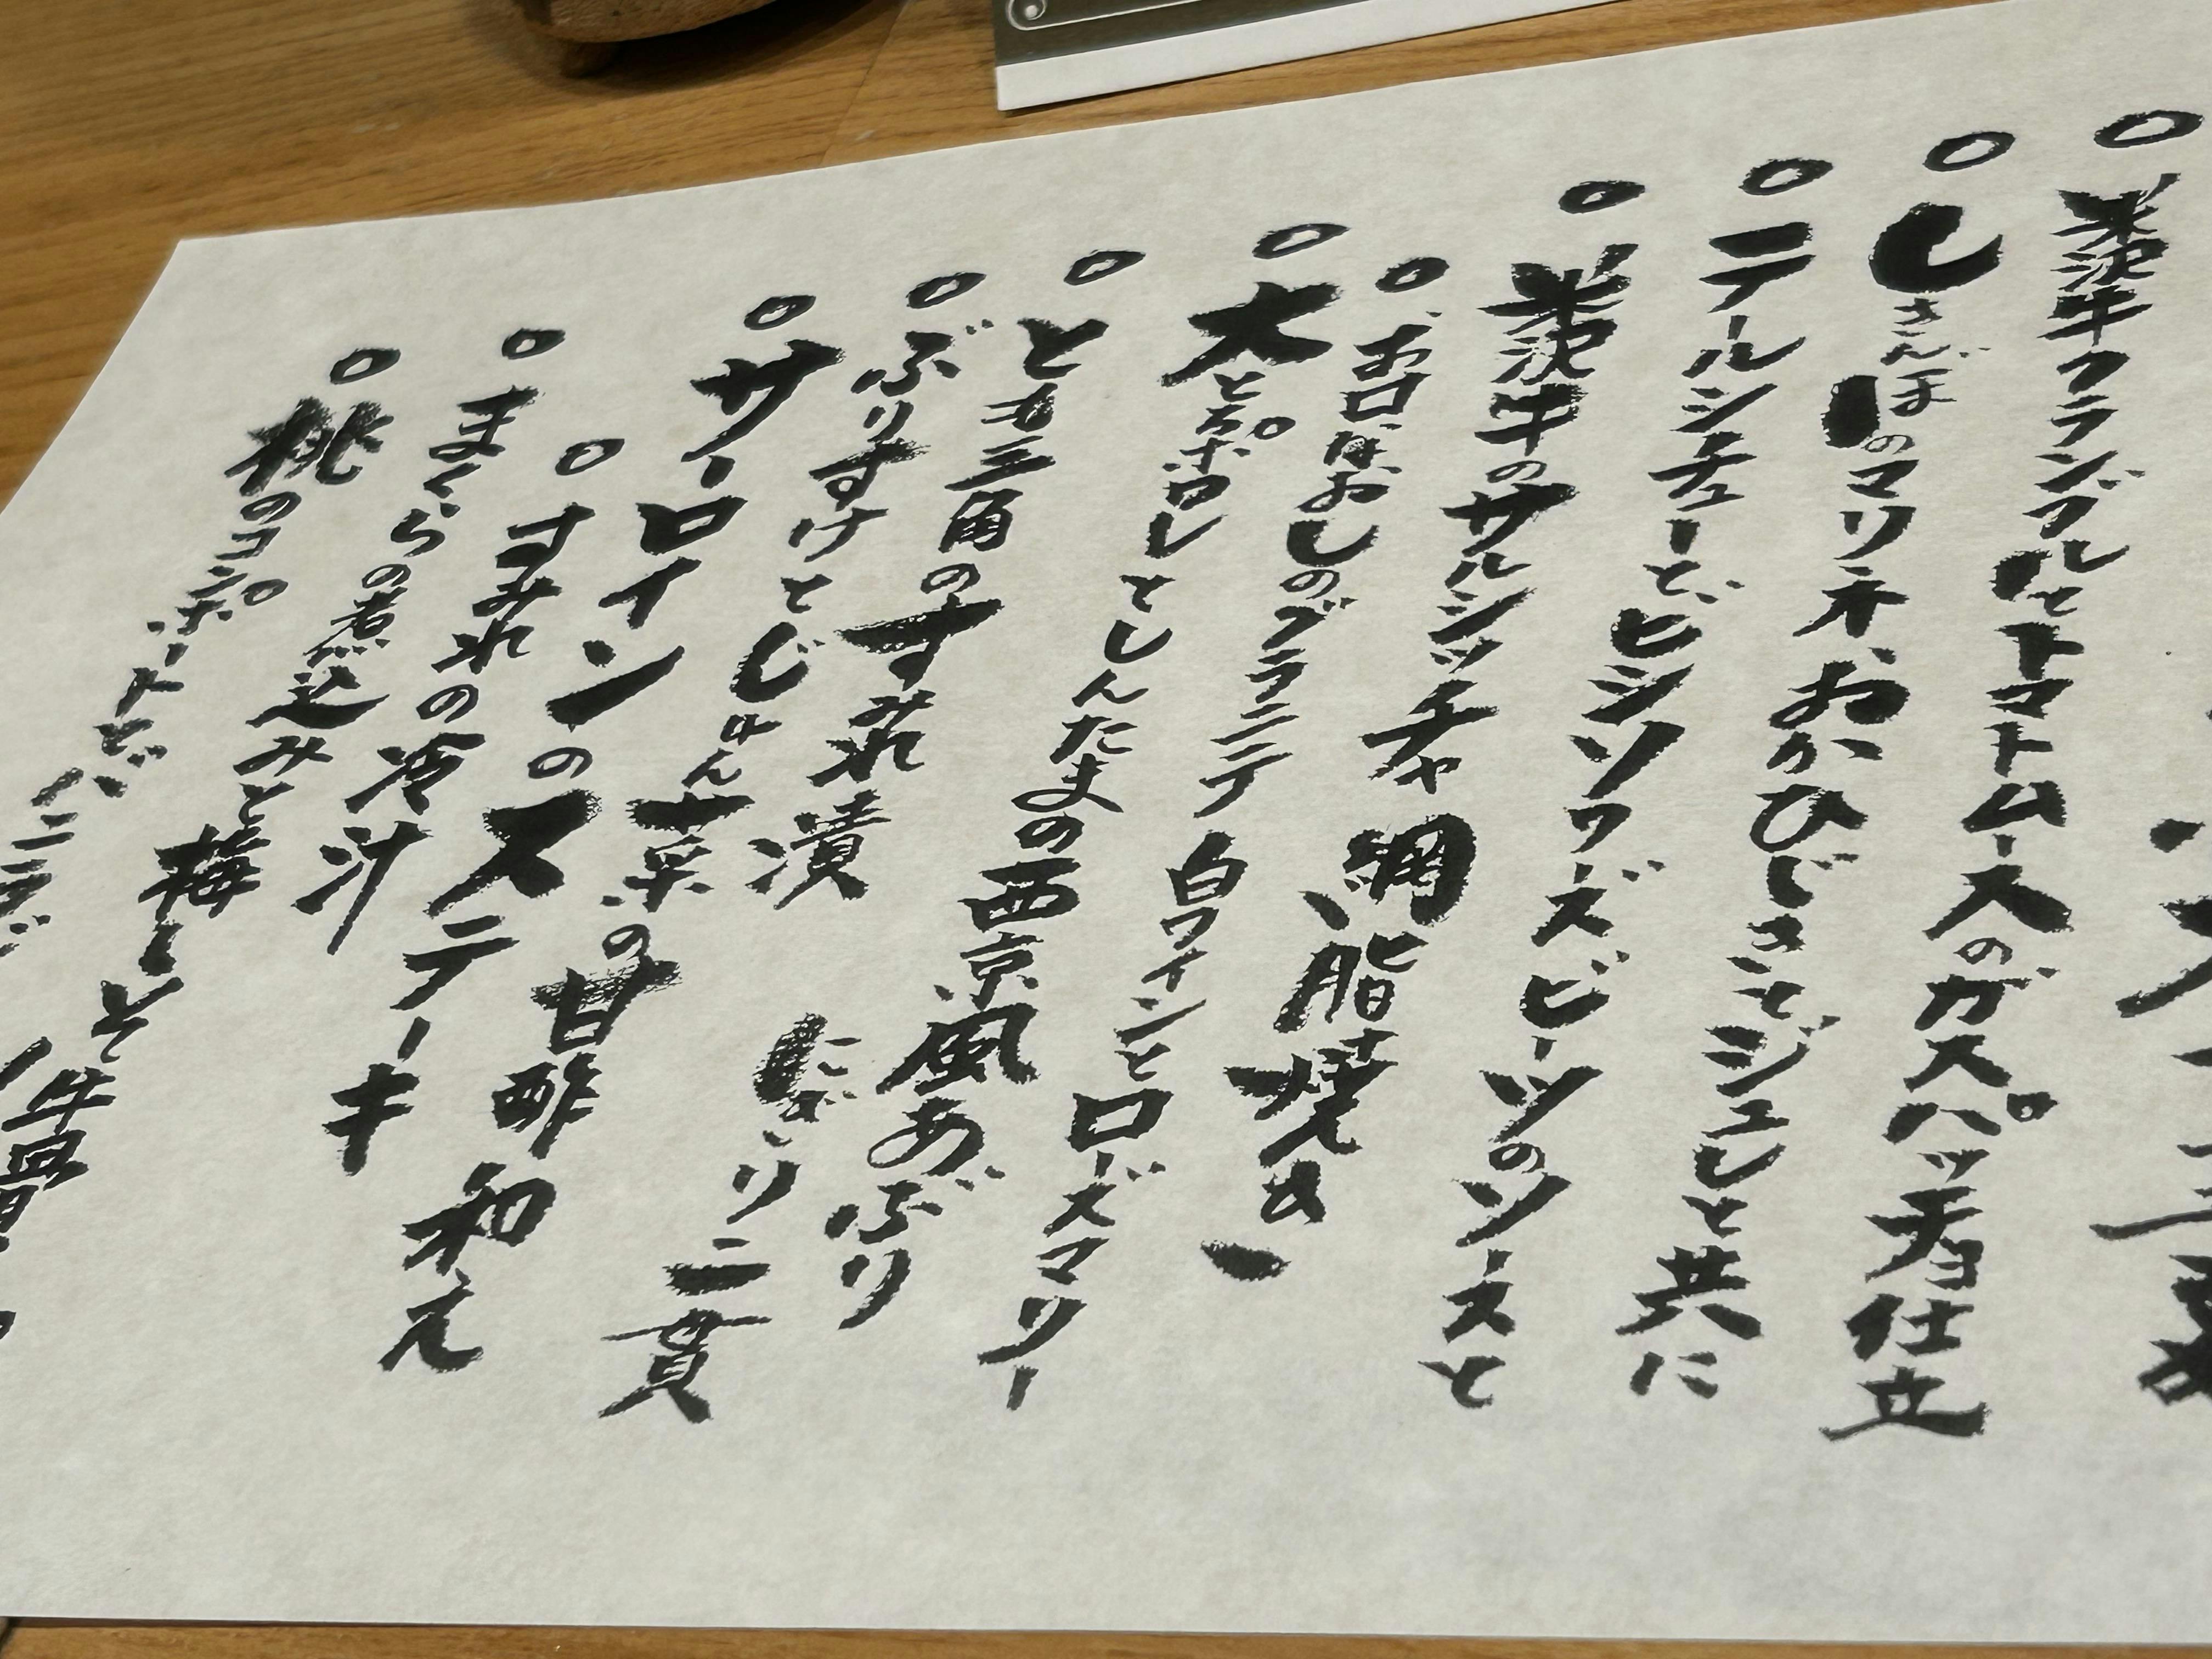 米沢牛クランブルとトマトムースのガスパッチョ仕立
しきんぼのマリネ、おかひじきとジュレと共に
テールシチューと、ヒンソワーズビーツのソースと
米沢牛のサルシッチャ 網脂焼き
お口なおしのグラニテ 白ワインとローズマリー
大とポロしとしんたまの西京風あぶり
とも三角のすみれ漬 にぎり二貫
ぶりすけとじゅん菜の甘酢和え
サーロインのステーキ
すみれの冷汁
まくらの煮込みと梅しそ
桃のコンポートと バニラ